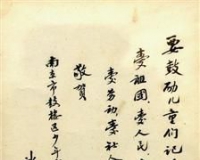 要鼓励儿童们记
爱祖国、爱人民
爱劳动、爱社
敬贺
南京市鼓楼区少年